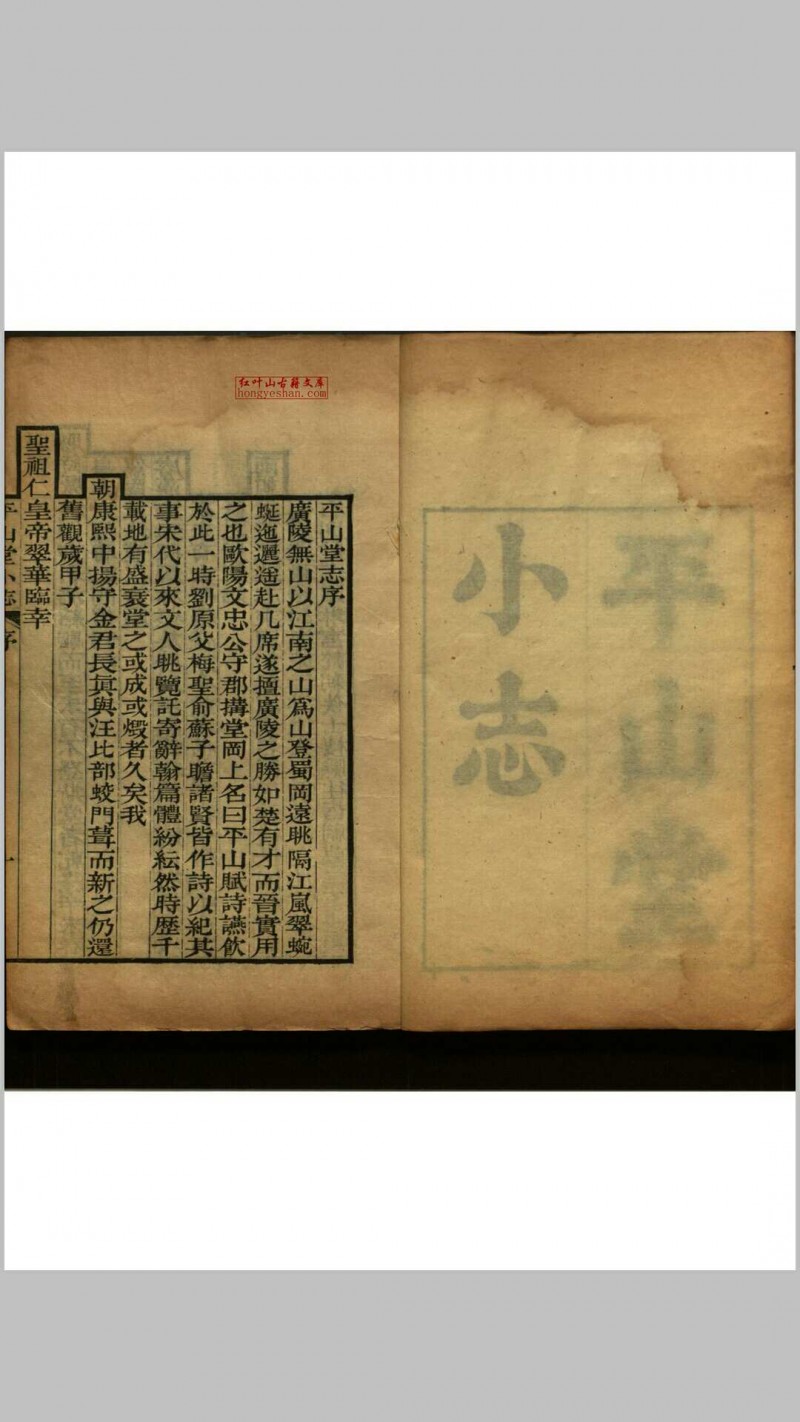 平山堂
小志
红叶山古籍文库
hongyeshan.com
平山堂志序
廣陵無山以江南之山爲山登蜀岡遠眺隔江嵐翠蜿
蜒迤邐遥赴几席遂擅廣陵之勝如楚有才而晉實用
之也歐陽文忠公守郡搆堂岡上名曰平山賦詩讌飲
於此一時劉原父梅聖俞蘇子瞻諸賢皆作詩以紀其
事宋代以來文人眺覽託寄辭翰篇體紛紜然時歷千
載地有盛衰堂之或成或燬者久矣我
朝康熙中揚守金君長眞與汪比部蛟門葺而新之仍還
舊觀歲甲子
聖祖仁皇帝翠華臨幸
平山堂小志 序 一